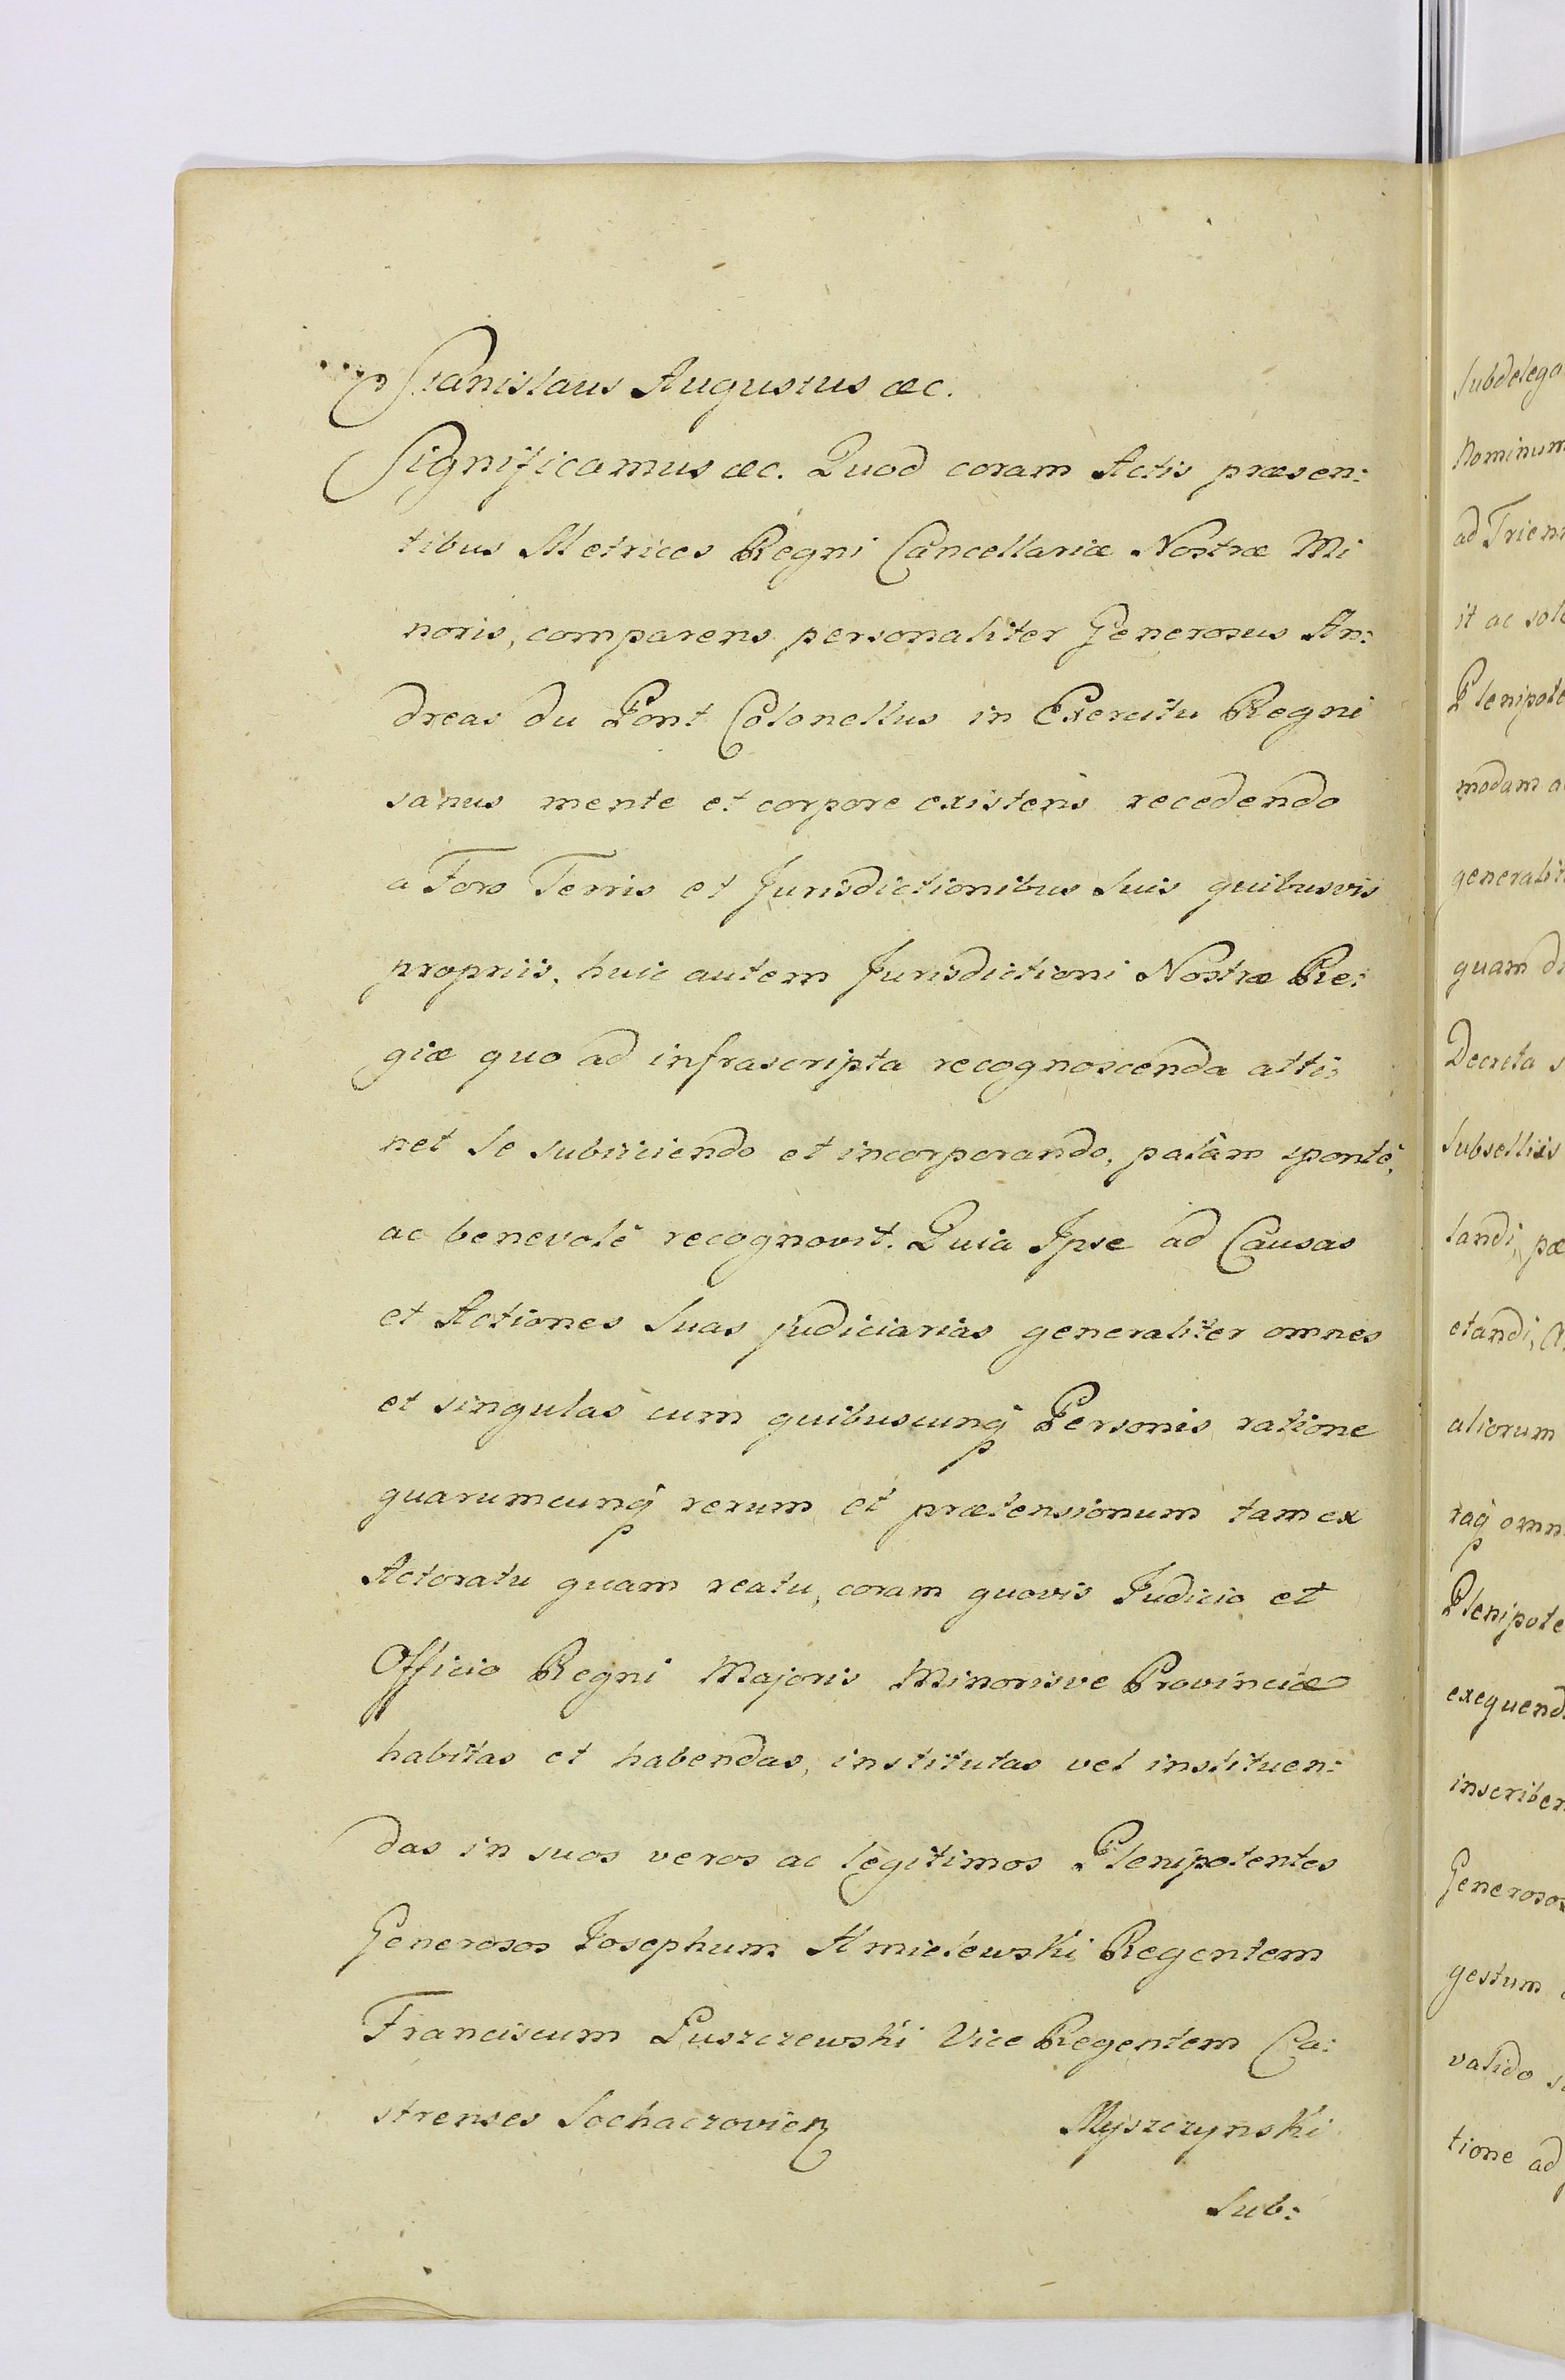 Stanislaus Augustus &c.
Significamus &c. Quod coram Actis præsen:
tibus Metrices Regni Cancellariæ Nostræ Mi
noris, comparens personaliter Generosus An:
dreas du Pont Colonellus in Exercitu Regni
sanus mente et corpore existens recedendo
a Foro Terris et Jurisdictionibus suis quibusvis
propriis, huic autem Jurisdictioni Nostræ Re:
giæ quo ad infrascripta recognoscenda atti:
net se subiiciendo et incorporando, palàm spontè,
ac benevolè recognovit. Quia Ipse ad Causas
et Actiones suas judiciarias generaliter omnes
et singulas cum quibuscunq Personis ratione
quarumcunq rerum et prætensionum tam ex
Actoratu quam reatu, coram quovis Judicio et
Officio Regni Majoris Minorisve Provinciæ
habitas et habendas, institutas vel instituen:
das in suos veros ac legitimos Plenipotentes
Generosos Josephum Kmielewski Regentem
Franciscum Puszczewski Vice Regentem Ca:
strenses Sochaczovien Myszczynski
Sub:
Subdelega
Nominum
ad Trien
it ac sole
Plenipote
modam a
generalit
quam di
Decreta s
Subselliis
landi, pæ
etandi, A
aliorum
raq omn
Plenipote
exequend
inscriben
Generosos
gestum
valido s
tione ad